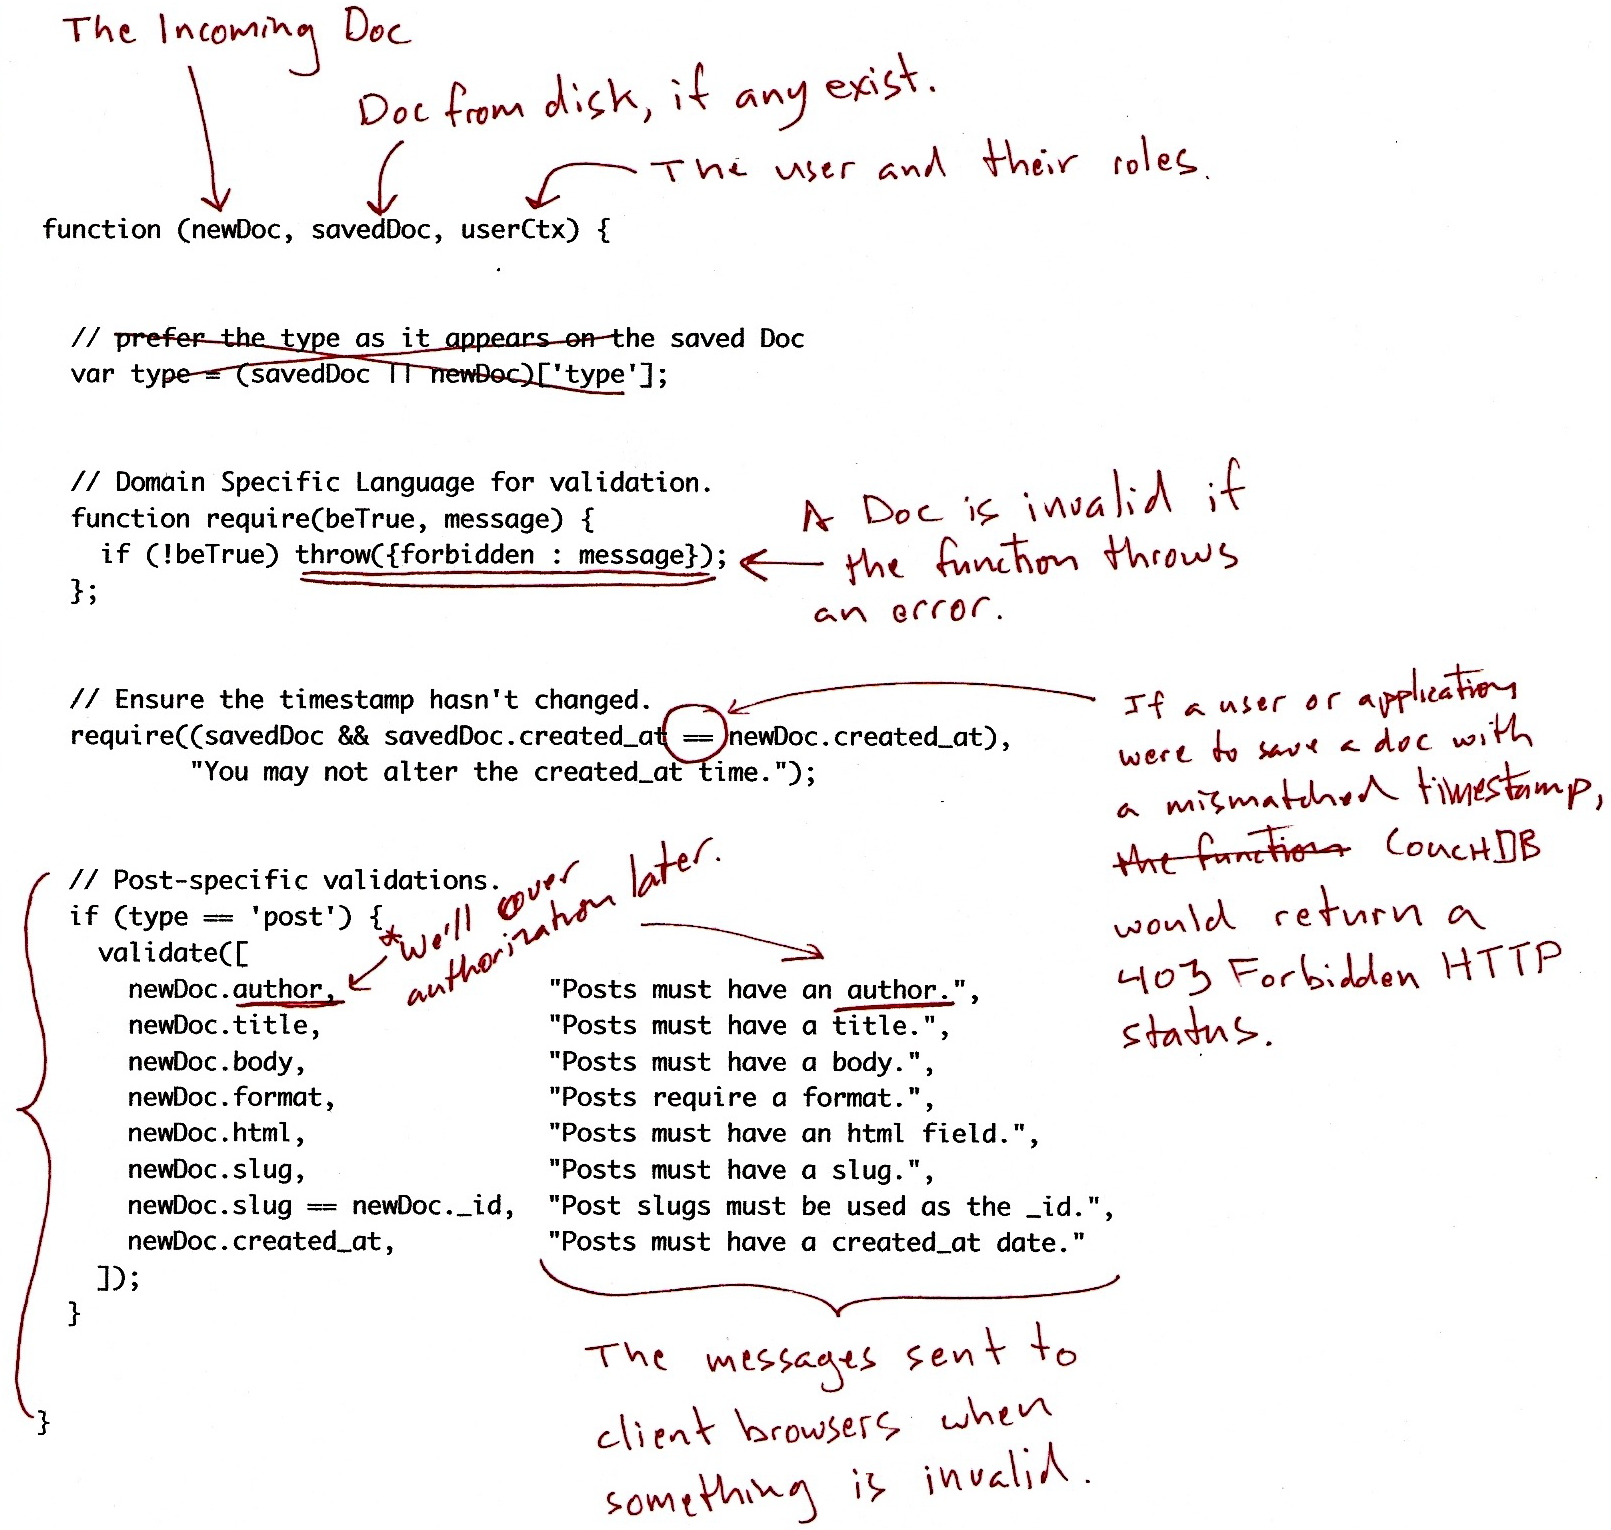 The Incoming Doc
Doc from disk, if any exist.
The user and their roles.
function (newDoc, savedDoc, userCtx) {
// prefer the type as it appears on the saved Doc
var type = (savedDoc || newDoc)['type'];
// Domain Specific Language for validation.
function require(beTrue, message) {
if (!beTrue) throw({forbidden : message});
};
A Doc is invalid if
the function throws
an error.
// Ensure the timestamp hasn't changed.
require((savedDoc && savedDoc.created_at == newDoc.created_at),
"You may not alter the created_at time.");
If a user or application
were to save a doc with
a mismatched timestamp,
the function CouchDB
would return a
403 Forbidden HTTP
status.
// Post-specific validations.
if (type == 'post') {
*We'll cover
authorization later.
validate([
newDoc.author, "Posts must have an author.",
newDoc.title, "Posts must have a title.",
newDoc.body, "Posts must have a body.",
newDoc.format, "Posts require a format.",
newDoc.html, "Posts must have an html field.",
newDoc.slug, "Posts must have a slug.",
newDoc.slug == newDoc._id, "Post slugs must be used as the _id.",
newDoc.created_at, "Posts must have a created_at date."
]);
}
}
The messages sent to
client browsers when
something is invalid.